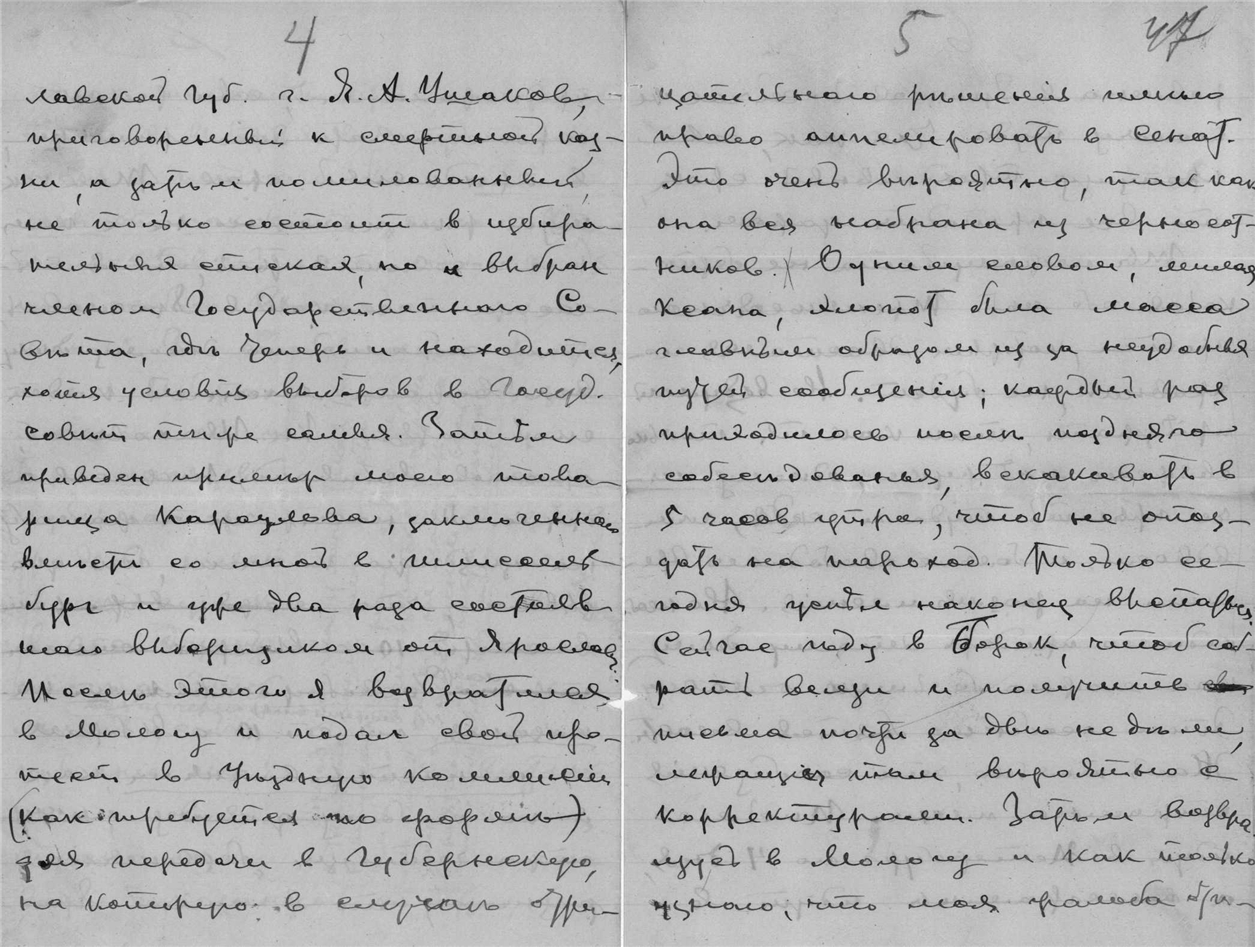 4
лавской губ. г. Я. А. Ушаков,
приговоренный к смертной каз-
ни, а затѣм помилованный,
не только состоит в избира-
тельных списках, но и выбран
членом Государственнаго Со-
вѣта, гдѣ теперь и находится,
хотя условия выборов в Госуд.
совѣт тѣже самыя. Затѣм
приведен примѣр моего това-
рища Караулова, заключеннаго
вмѣстѣ со мной в Шлиссель-
бург и уже два раза состояв-
шаго выборщиком от Ярославл.
Послѣ этого я возвратился
в Мологу и подал свой про-
тест в Уѣздную коммиссiю
(как требуется по формѣ)
для передачи в Губернскую,
на которую в случаѣ отри-
5 47
цательнаго рѣшенiя имѣю
право аппелировать в Сенат.
Это очень вѣроятно, так как
она вся набрана из черносот-
ников.) Одним словом, милая
Ксана, хлопот была масса
главным образом из за неудобных
путей сообщенiя; каждый раз
приходилось послѣ поздняго
собесѣдованья, вскакивать в
5 часов утра, чтоб не опоз-
дать на пароход. Только се-
годня успѣл наконец выспаться.
Сейчас поѣду в Борок, чтоб соб-
рать вещи и получить
письма почти за двѣ недѣли,
лежащiя там вѣроятно с
корректурами. Затѣм возвра-
щусь в Мологу и как только
узнаю, что моя жалоба бу-